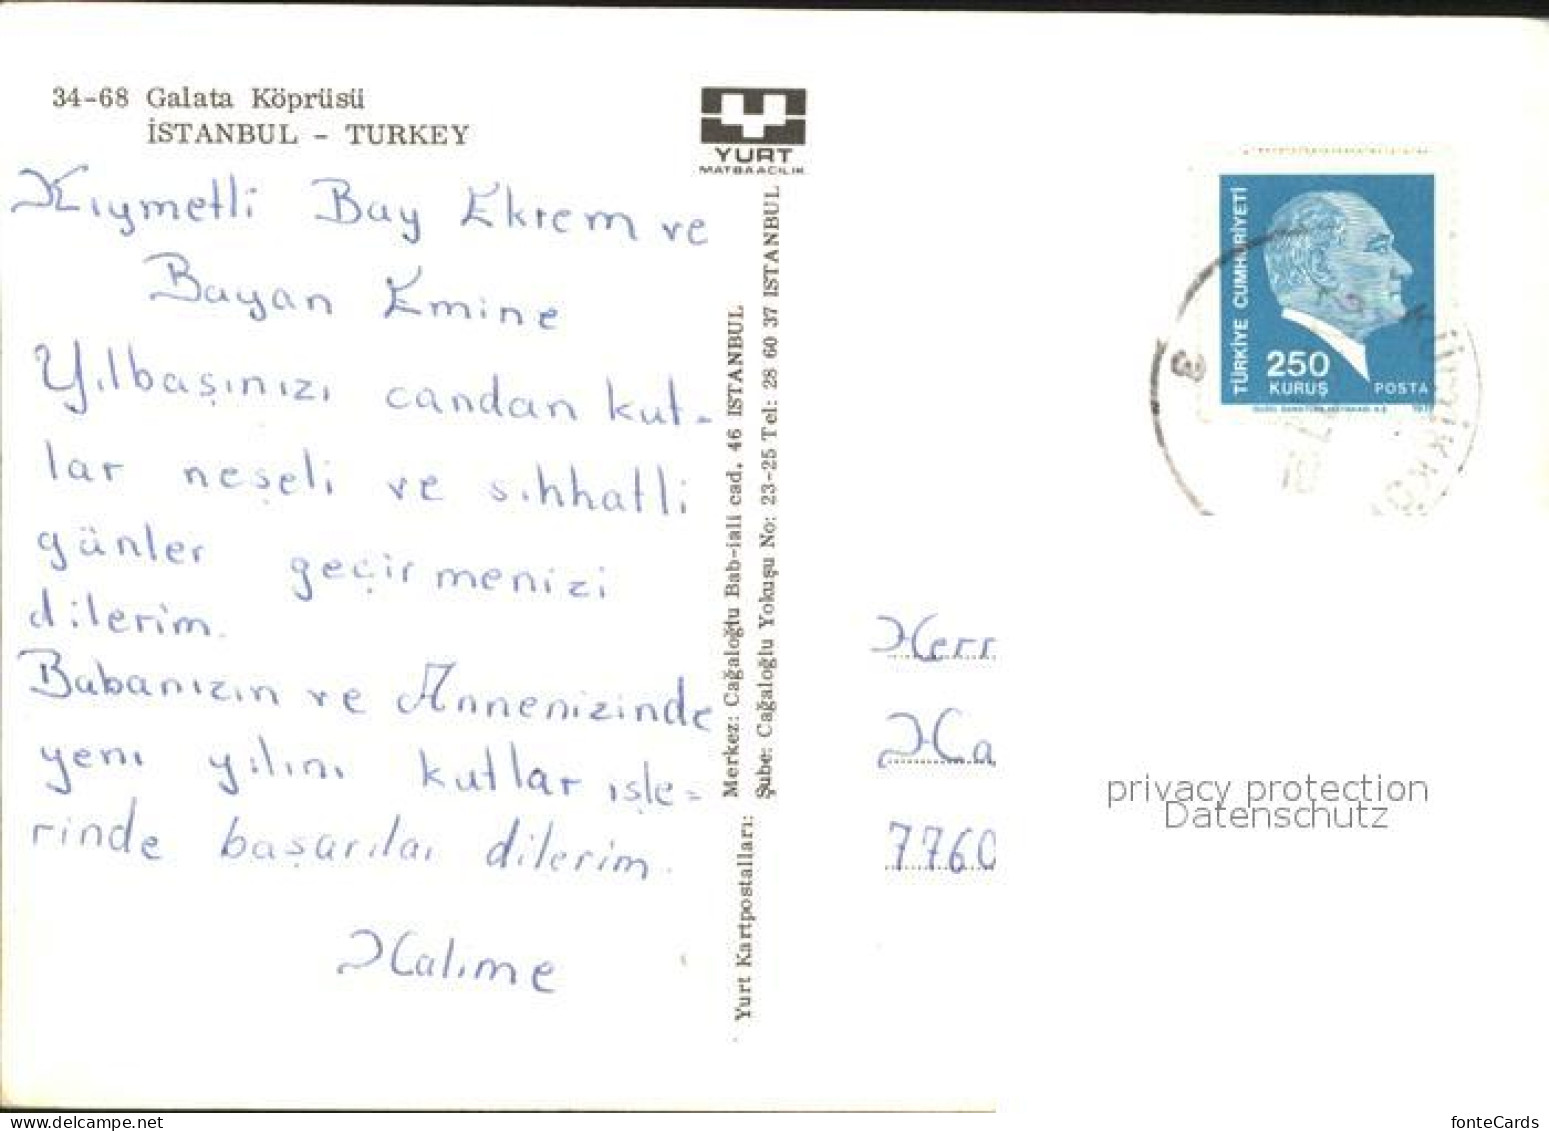 34-68 Galata Köprüsü
İSTANBUL - TURKEY
YURT
MATBAACILIK
Kıymetli Bay Ekrem ve
Bayan Emine
Yılbaşınızı candan kut-
lar neşeli ve sıhhatli
günler geçirmenizi
dilerim.
Babanızın ve Annenizinde
yeni yılını kutlar işle-
rinde başarılar dilerim.
Halime
Yurt Kartpostalları:
Merkez: Cağaloğlu Bab-ıali cad. 46 ISTANBUL
Şube: Cağaloğlu Yokuşu No: 23-25 Tel: 28 60 37 ISTANBUL
TÜRKİYE CUMHURİYETİ
250
KURUŞ
POSTA
3
Herr
Ha
7760
privacy protection
Datenschutz
fonteCards